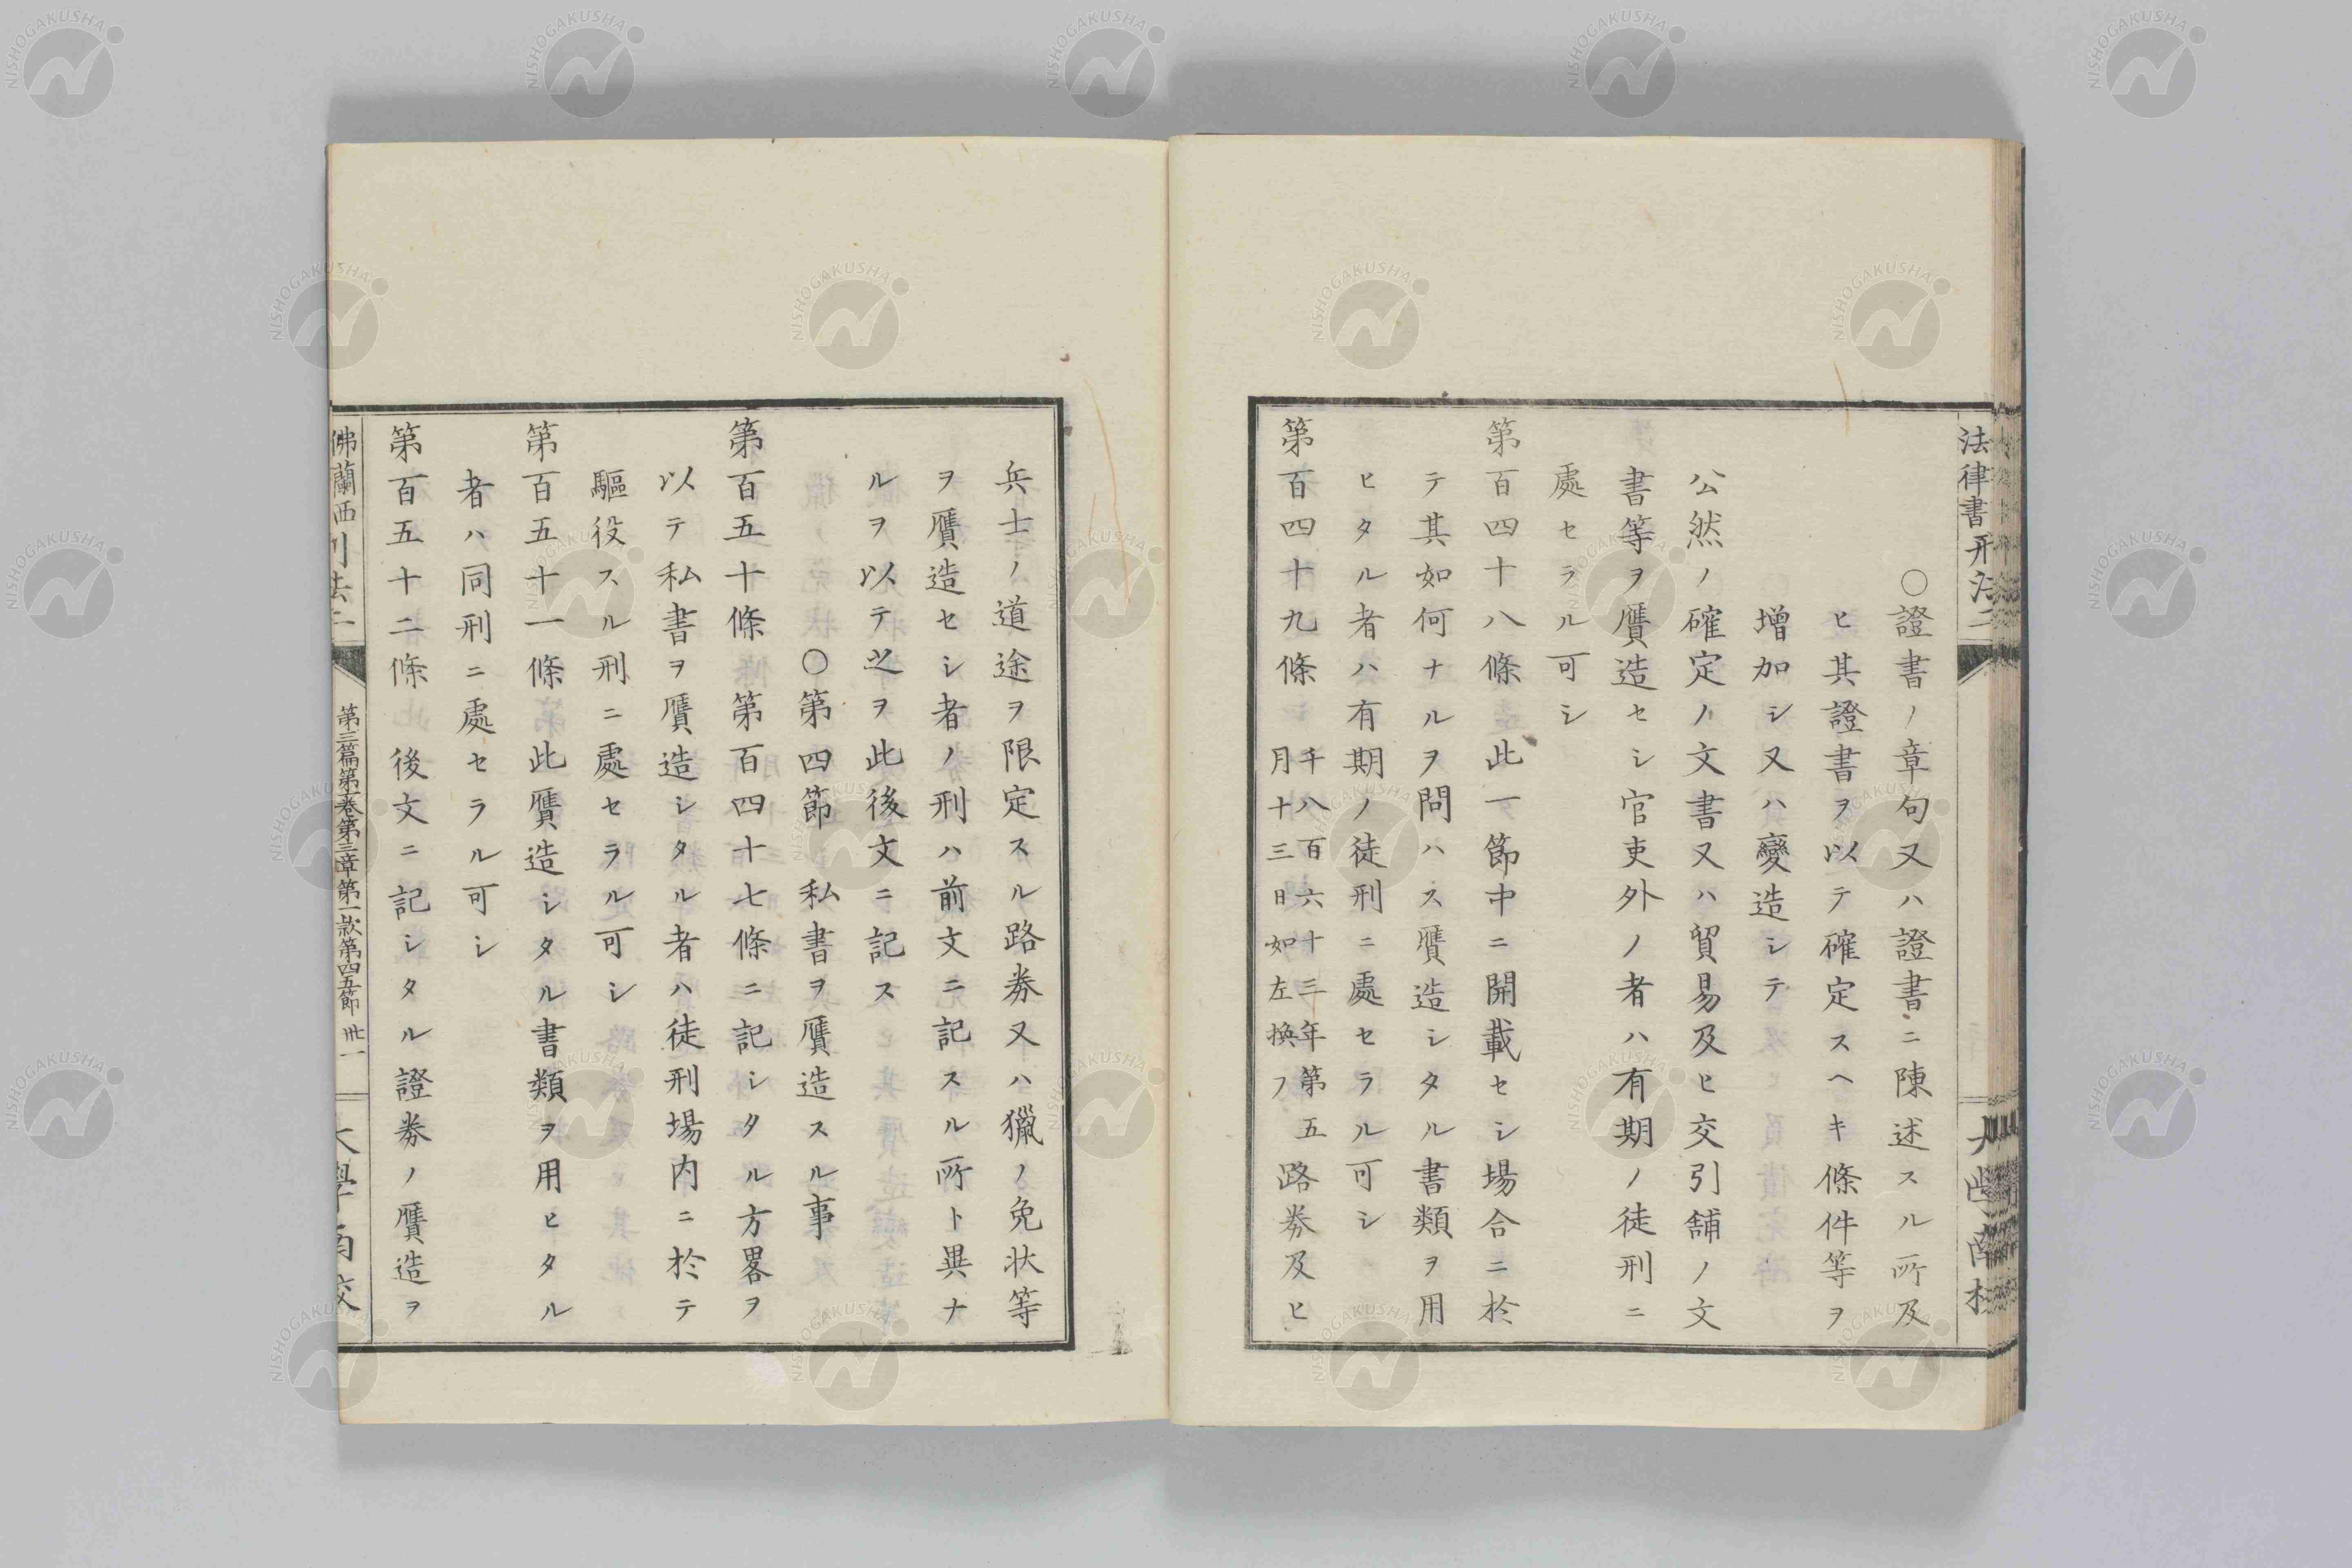 法律書刑法二
○證書ノ章句又ハ證書ニ陳述スル所及
ヒ其證書ヲ以テ確定スヘキ條件等ヲ
増加シ又ハ變造シテ
公然ノ確定ノ文書又ハ貿易及ヒ交引舗ノ文
書等ヲ贋造セシ官吏外ノ者ハ有期ノ徒刑ニ
處セラル可シ
第百四十八條 此一節中ニ開載セシ場合ニ於
テ其如何ナルヲ問ハス贋造シタル書類ヲ用
ヒタル者ハ有期ノ徒刑ニ處セラル可シ
第百四十九條 千八百六十三年第五
月十三日如左換フ
路劵及ヒ
兵士ノ道途ヲ限定スル路劵又ハ獵ノ免状等
ヲ贋造セシ者ノ刑ハ前文ニ記スル所ト異ナ
ルヲ以テ之ヲ此後文ニ記ス
○第四節 私書ヲ贋造スル事
第百五十條 第百四十七條ニ記シタル方畧ヲ
以テ私書ヲ贋造シタル者ハ徒刑場内ニ於テ
驅役スル刑ニ處セラル可シ
第百五十一條 此贋造シタル書類ヲ用ヒタル
者ハ同刑ニ處セラル可シ
第百五十二條 後文ニ記シタル證劵ノ贋造ヲ
佛蘭西刑法二
第三篇第一巻第三章第一款第四五節 丗一
大學南校
NISHOGAKUSHA